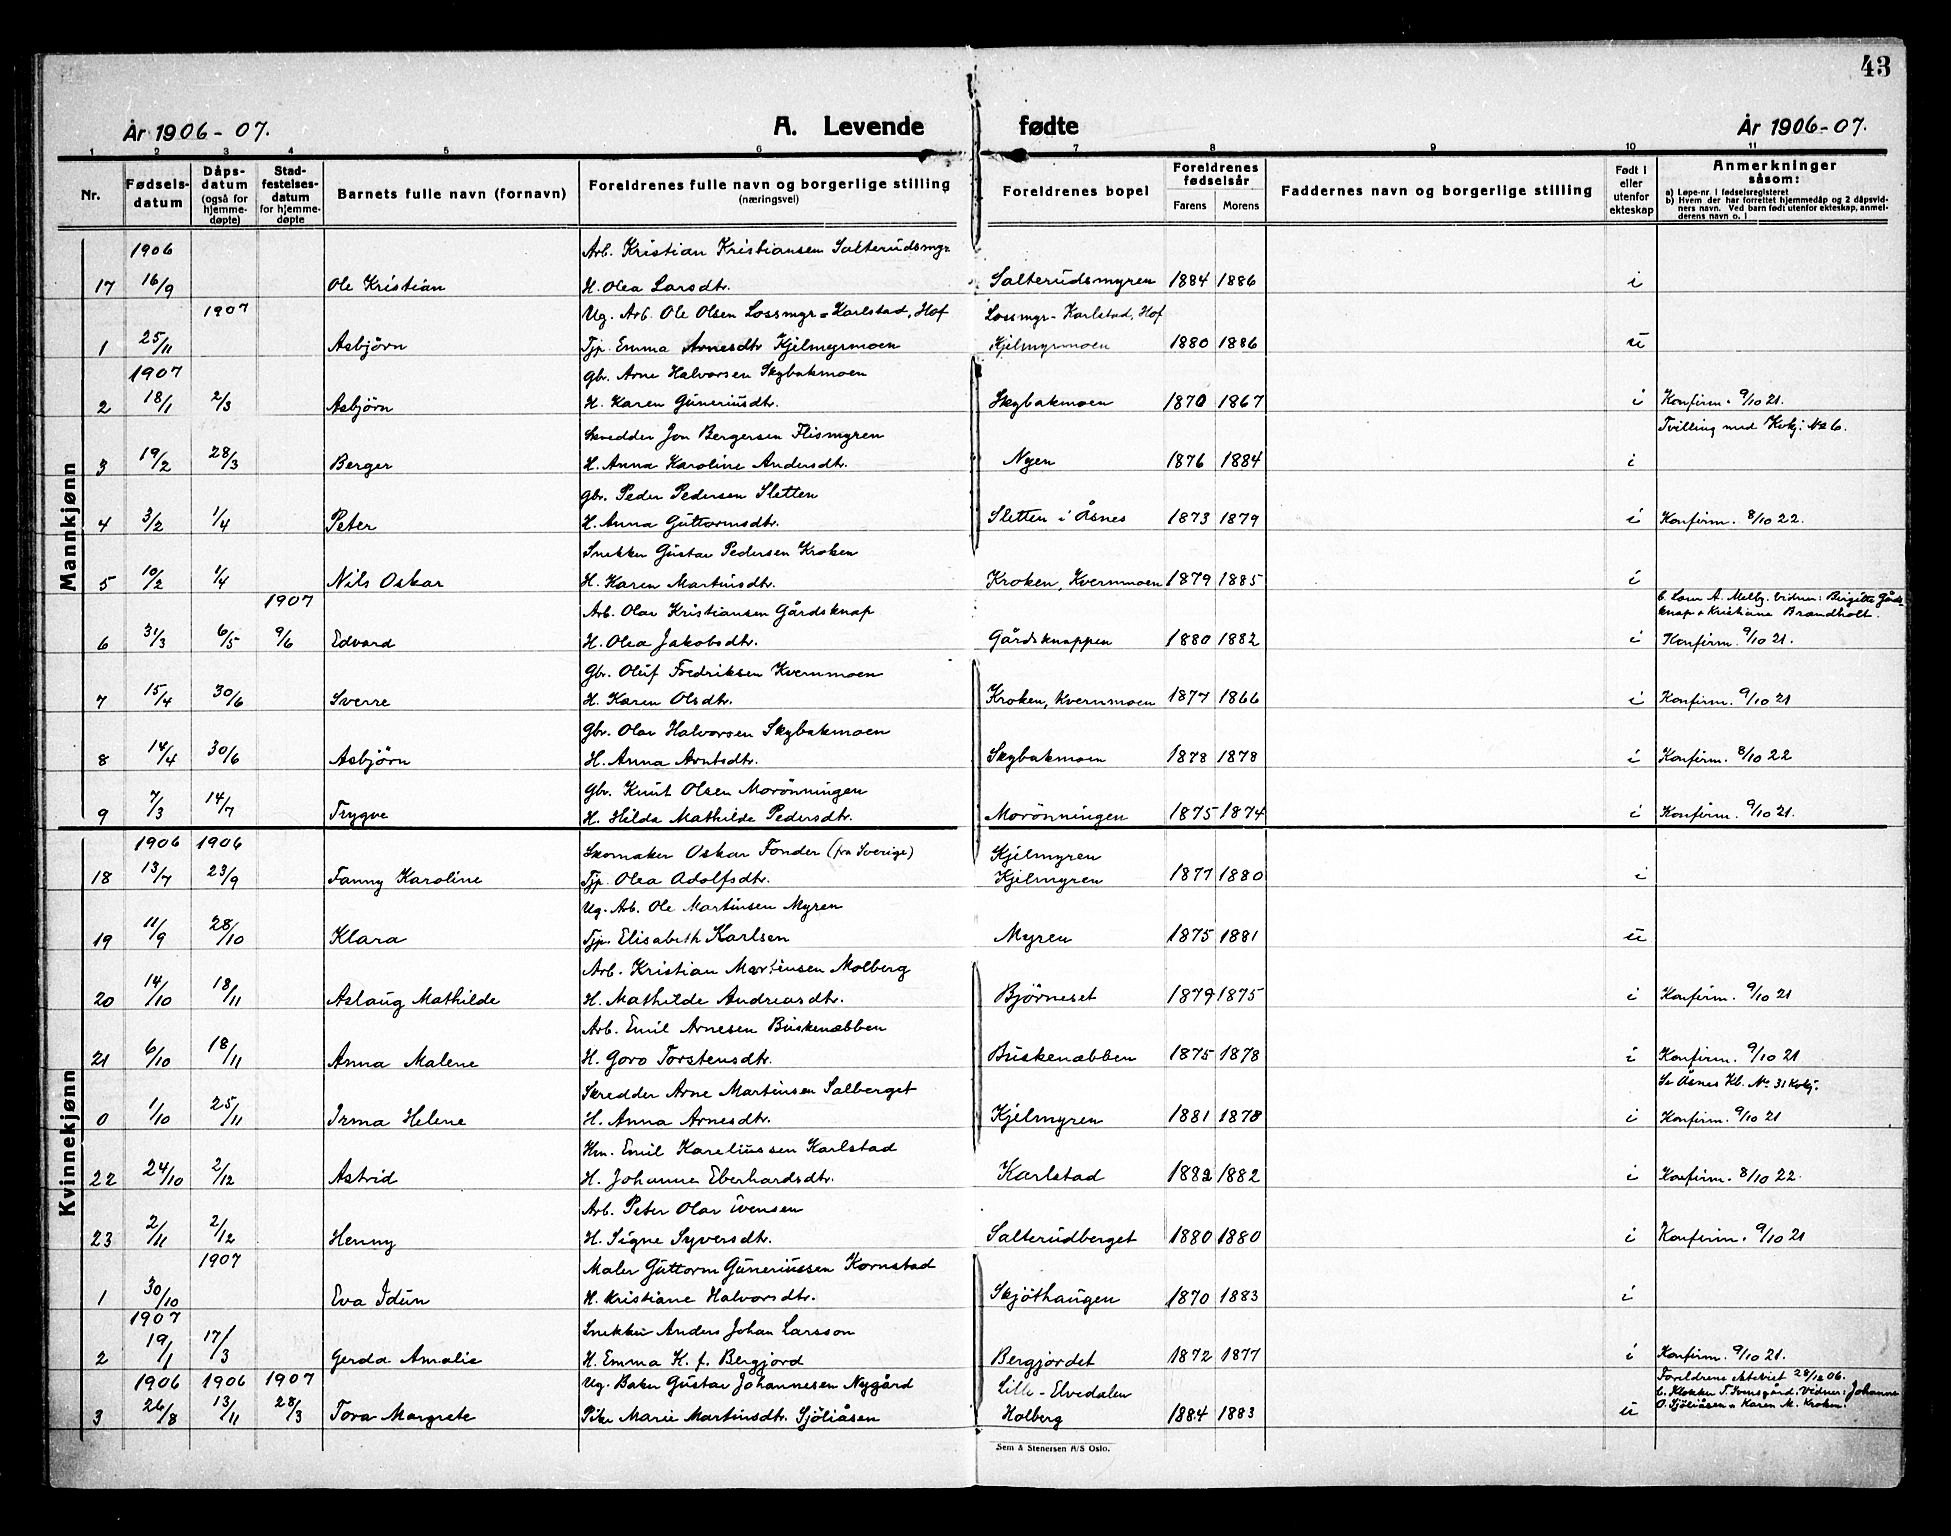 43
År 1906-07. A. Levende fødte År 1906-07.
1 2 3 4 5 6 7 8 9 10 11
Nr. Fødsels-datum Dåps-datum (også for hjemme-døpte) Stad-festelses-datum for hjemme-døpte Barnets fulle navn (fornavn) Foreldrenes fulle navn og borgerlige stilling (næringsvei) Foreldrenes bopel Foreldrenes fødselsår Farens Morens Faddernes navn og borgerlige stilling Født i eller utenfor ekteskap Anmerkninger såsom:
a) Løpe-nr. i fødselsregisteret
b) Hvem der har forrettet hjemmedåp og 2 dåpsvid-
ners navn. Ved barn født utenfor ekteskap, anmel-
derens navn o. l
Mannkjønn
1906 Arb. Kristian Kristiansen Salterudsmyr
17 16/9 Ole Kristian H. Olea Larsdtr. Salterudsmyren 1884 1886 i
1907 Ug. Arb. Ole Olsen Lossmyr - Karlstad, Hof Lossmyr - Karlstad, Hof
1 25/11 Asbjörn Tjp. Emma Arnesdtr Kjelmyrmoen Kjelmyrmoen 1880 1886 u
1907 Gbr. Arne Halvorsen Skybakmoen
2 18/1 2/3 Asbjörn H. Karen Guneriusdtr. Skybakmoen 1870 1867 i Konfirm. 9/10 21.
Skredder Jon Bergersen Flismyren Tvilling med Kvkj. No 6.
3 19/2 28/3 Berger H. Anna Karoline Andersdtr. Nyen 1876 1884 i
Gbr. Peder Pedersen Sletten
4 3/2 1/4 Peter H. Anna Guttormsdtr. Sletten i Åsnes 1873 1879 i Konfirm. 8/10 22.
Snekker Gustav Pedersen Kroken
5 10/2 1/4 Nils Oskar H. Karen Martinsdtr. Kroken, Kvernmoen 1879 1885 i
1907 Arb. Olav Kristiansen Gårdsknap b. Lovn A. Melby. Vidner: Birgitte Gårds-
knap o Kristiane Brandholt.
6 31/3 6/5 9/6 Edvard H. Olea Jakobsdtr. Gårdsknappen 1880 1882 i Konfirm. 9/10 21.
Gbr. Oluf Fredriksen Kvernmoen
7 15/4 30/6 Sverre H. Karen Olsdtr. Kroken, Kvernmoen 1877 1866 i Konfirm. 9/10 21
Gbr. Olav Halvorsen Skybakmoen
8 14/4 30/6 Asbjörn H. Anna Arntsdtr. Skybakmoen 1878 1878 i Konfirm. 8/10 22
Gbr. Knut Olsen Morönningen
9 7/3 14/7 Trygve H. Hilda Mathilde Pedersdtr. Morönningen 1875 1874 i Konfirm. 9/10 21.
Kvinnekjønn
1906 1906 Skomaker Oskar Fonder (fra Sverige) Kjelmyren
18 13/7 23/9 Fanny Karoline Tjp. Olea Adolfsdtr. Kjelmyren 1877 1880 i
Ug. Arb. Ole Martinsen Myren
19 11/9 28/10 Klara Tjp. Elisabeth Karlsen Myren 1875 1881 u
Arb. Kristian Martinsen Molberg
20 14/10 18/11 Aslaug Mathilde H. Mathilde Andreasdtr. Bjørneset 1879 1875 i Konfirm. 9/10 21
Arb. Emil Arnesen Buskenæbben
21 6/10 18/11 Anna Malene H. Goro Torstensdtr. Buskenæbben 1875 1878 i Konfirm. 9/10 21
Skredder Arne Martinsen Salberget Se Åsnes Kb. No 31 Kvkj.
0 1/10 25/11 Irma Helene H. Anna Arnesdtr. Kjelmyren 1881 1878 i Konfirm. 9/10 21
Hm. Emil Kareliussen Karlstad
22 24/10 2/12 Astrid H. Johanne Eberhardsdtr. Karlstad 1882 1882 i Konfirm. 8/10 22.
Arb. Peter Olav Ivensen
23 2/11 2/12 Henny H. Signe Syversdtr. Salterudberget 1880 1880 i Konfirm. 9/10 21
1907 Maler Guttorm Guneriussen Kornstad
1 30/10 Eva Idun H. Kristiane Halvorsdtr. Skjöthaugen 1870 1883 i
1907 Snekker Anders Johan Larsson
2 19/1 17/3 Gerda Amalie H. Emma K. f. Bergjord Bergjordet 1872 1877 i Konfirm. 9/10 21.
1906 1906 1907 Ug. Baker Gustav Johannesen Nygård Lille-Elvedalen Foreldrene ekteviet 28/12 06.
b. Klokker T. Ivensgård. Vidner: Johannes
3 26/8 13/11 28/3 Tora Margrete Pike Marie Martinsdtr. Sjöliåsen Holberg 1884 1883 u O. Sjöliåsen o Karen M. Kroken.
Sem & Stenersen A/S Oslo.